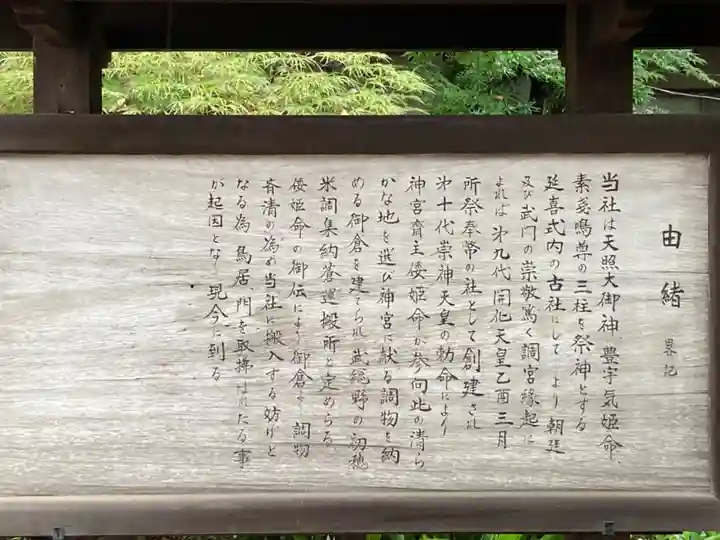 由緒 畧記
当社は天照大御神、豊宇気姫命、
素戔嗚尊の三柱を祭神とする
延喜式内の古社にして より朝廷
及び武門の崇敬篤く調宮縁起に
よれば第九代開化天皇乙酉三月
所祭奉幣の社として創建され
第十代崇神天皇の勅命により
神宮斎主倭姫命が参向此の清ら
かな地を選び神宮に献る調物を納
める御倉を建てられ武総野の初穂
米調集納蒼運搬所と定めらる
倭姫命の御伝により御倉より調物
斉清の為め当社に搬入する妨げと
なる為、鳥居、門を取拂はれたる事
が起因となり現今に到る